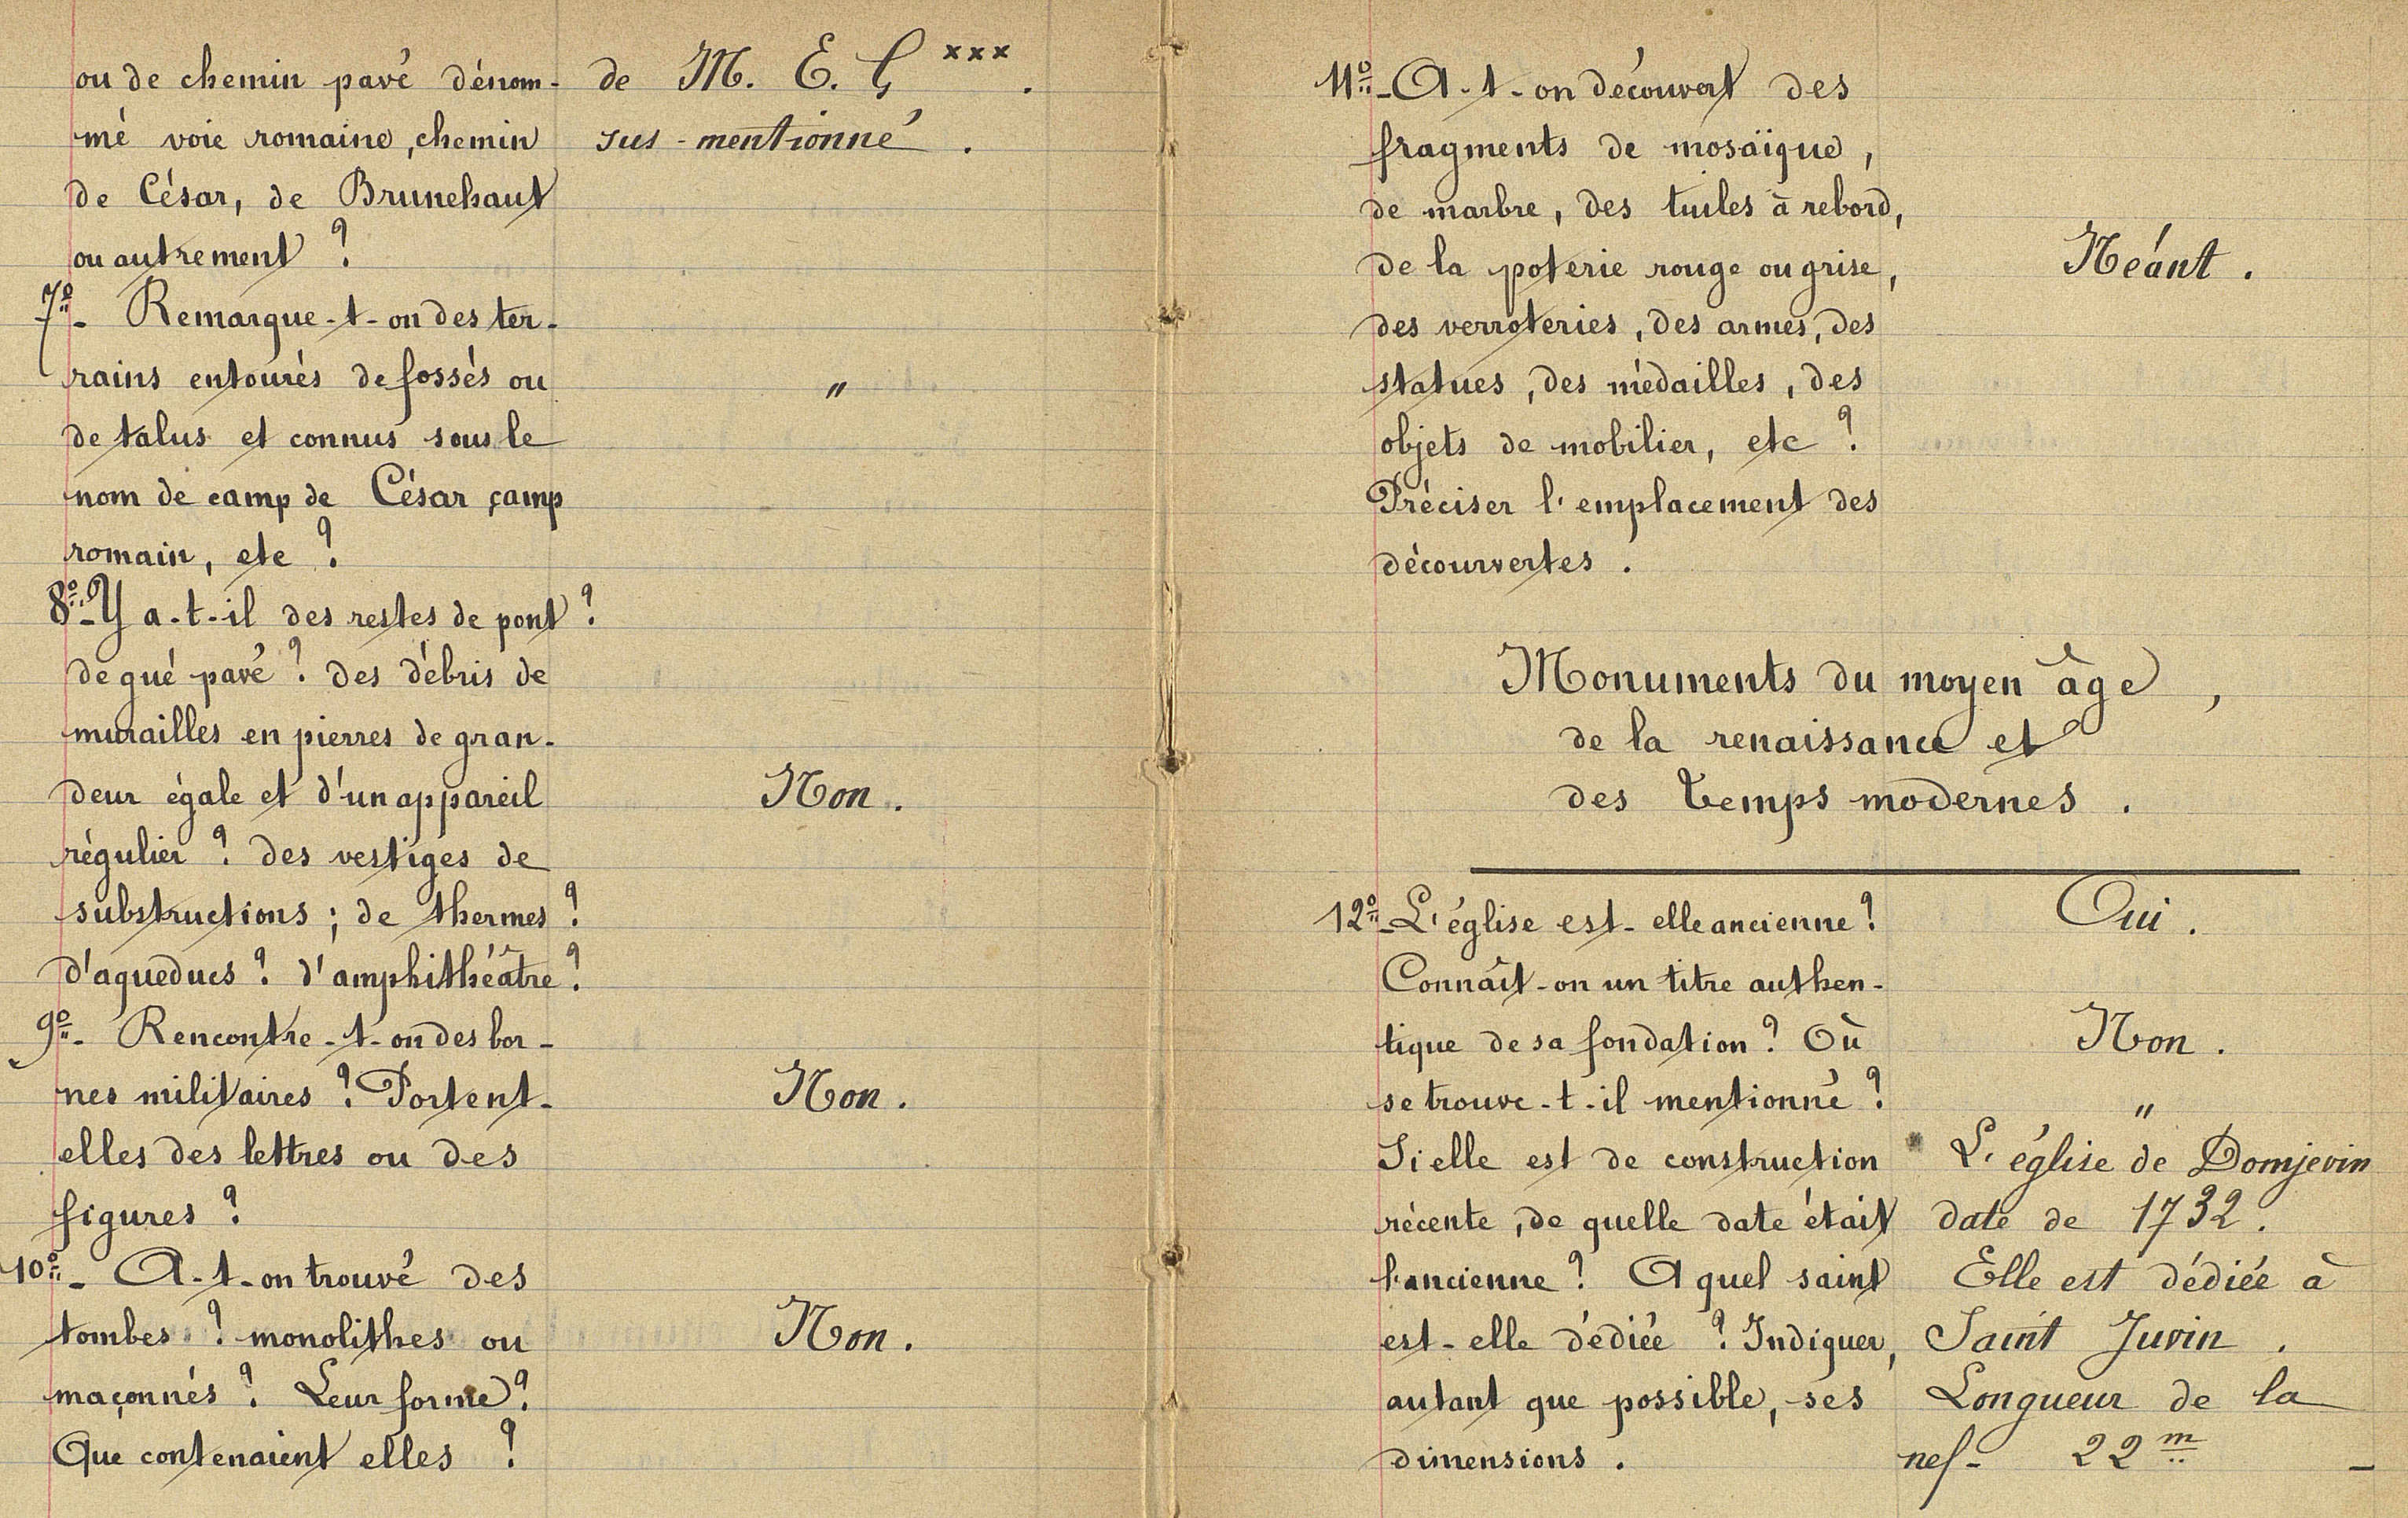 ou de chemin pavé dénom-
mé voie romaine, chemin
de César, de Brunehaut
ou autrement ?
7º- Remarque-t-on des ter-
rains entourés de fossés ou
de talus et connus sous le
nom de camp de César, camp
romain, etc ?
8º- Y a-t-il des restes de pont ?
de gué pavé ? des débris de
murailles en pierres de gran-
deur égale et d'un appareil
régulier ? des vestiges de
substructions ; de thermes ?
d'aqueducs ? d'amphithéâtre ?
9º- Rencontre-t-on des bor-
nes militaires ? Portent-
elles des lettres ou des
figures ?
10º- A-t-on trouvé des
tombes ? monolithes ou
maçonnés ? Leur forme ?
Que contenaient elles ?
de M. E. G xxx .
sus-mentionné .
"
Non .
Non .
Non .
11º- A-t-on découvert des
fragments de mosaïque,
de marbre, des tuiles à rebord,
de la poterie rouge ou grise,
des verroteries, des armes, des
statues, des médailles, des
objets de mobilier, etc ?
Préciser l'emplacement des
découvertes .
Néant .
Monuments du moyen âge,
de la renaissance et
des temps modernes .
12º- L'église est-elle ancienne ?
Connaît-on un titre authen-
tique de sa fondation ? Où
se trouve-t-il mentionné ?
Si elle est de construction
récente, de quelle date était
l'ancienne ? A quel saint
est-elle dédiée ? Indiquer,
autant que possible, ses
dimensions .
Oui .
Non .
"
L'église de Domjevin
date de 1732 .
Elle est dédiée à
Saint Juvin .
Longueur de la
nef - 22 m -